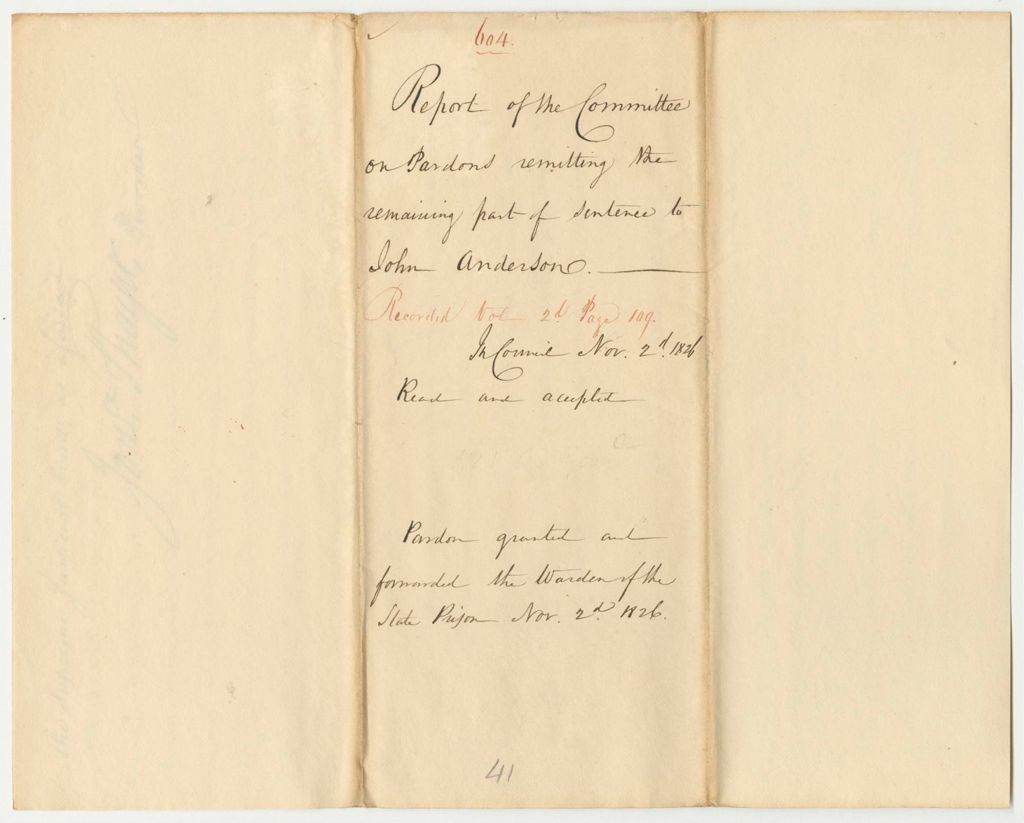 604.
Report of the Committee
on Pardons remitting the
remaining part of sentence to
John Anderson.
Recorded Vol 2d. Page 109.
In Council Nov. 2d. 1826
Read and accepted
Pardon granted and
forwarded the Warden of the
State Prison Nov. 2d. 1826.
41